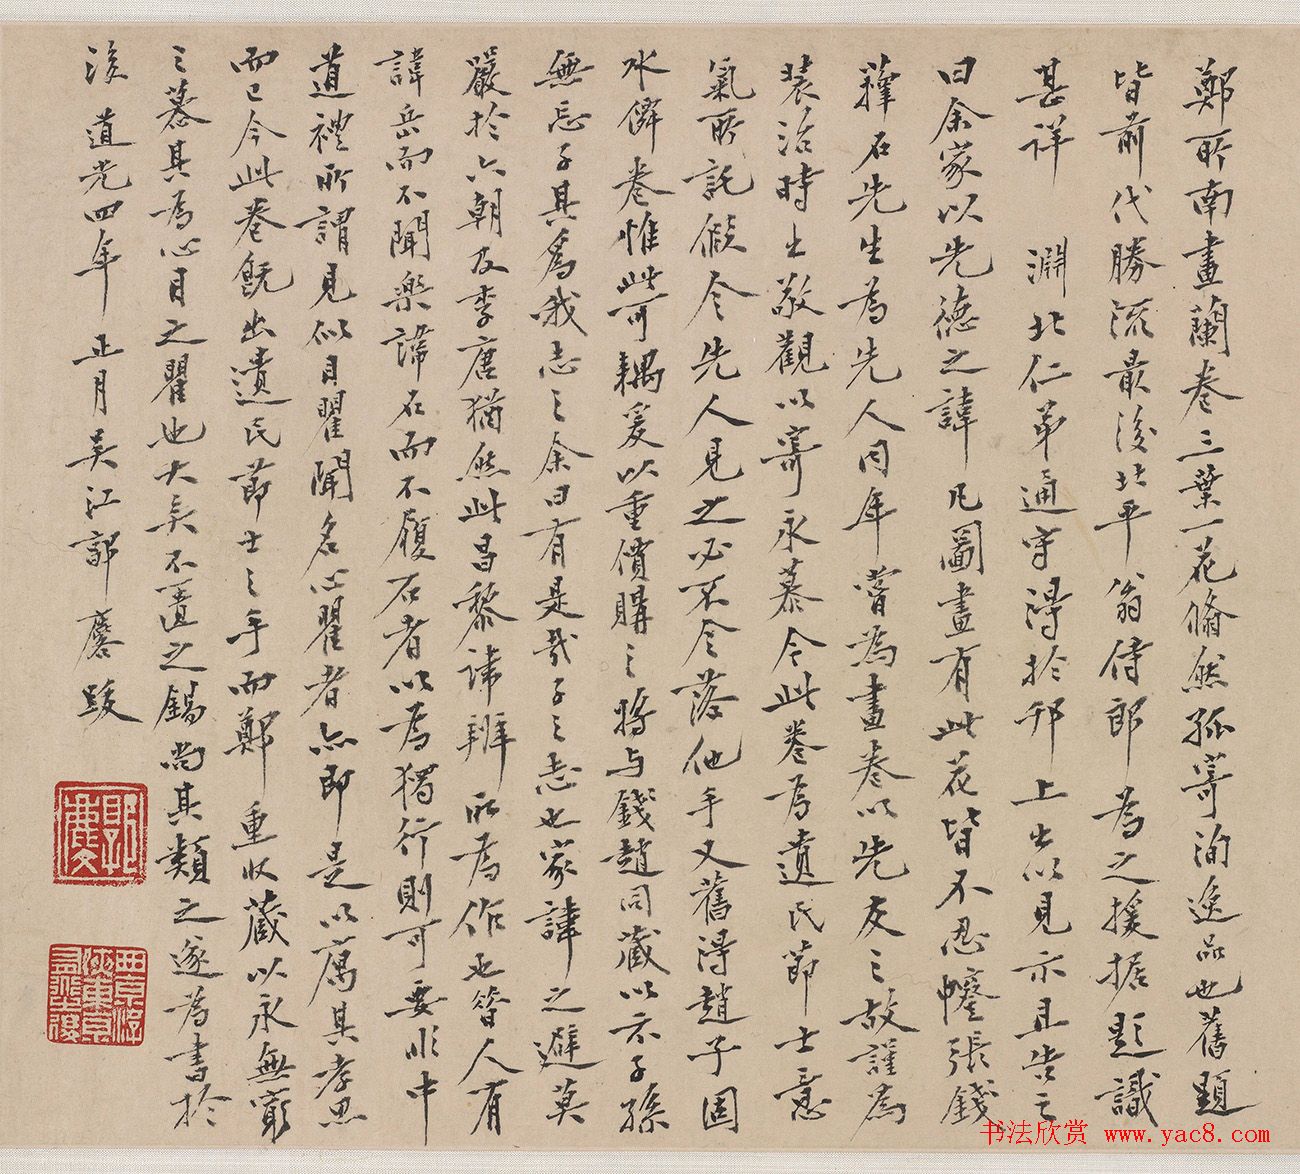 鄭所南畫蘭卷三葉一花翛然孤寄洵逸品也舊題
皆前代勝流最後北平翁侍郎為之援据題識
甚詳 淵北仁弟通守得於邗上出以見示且告之
曰余家以先德之諱凡圖畫有此花皆不忍幛張錢
蘀石先生為先人同年嘗為畫卷以先友之故謹為
裝治時出敬觀以寄永慕今此卷為遺民節士意
氣所託假令先人見之必不令落他手又舊得趙子固
水僊卷惟此可耦爰以重償購之將与錢趙同藏以示子孫
無忘子其為我志之余曰有是哉子之志也家諱之避莫
嚴於六朝及李唐猶然此昌黎諱辨所為作也昔人有
諱岳而不聞樂諱石而不履石者以為獨行則可要非中
道禮所謂見似目瞿聞名心瞿者亦即是以厲其孝思
而已今此卷既出遺民節士之手而鄭重收藏以永無窮
之慕其為心目之瞿也大矣不匱之錫尚其類之遂為書於
後 道光四年正月吳江郭麐跋
郭麐
書法欣赏 www.yac8.com